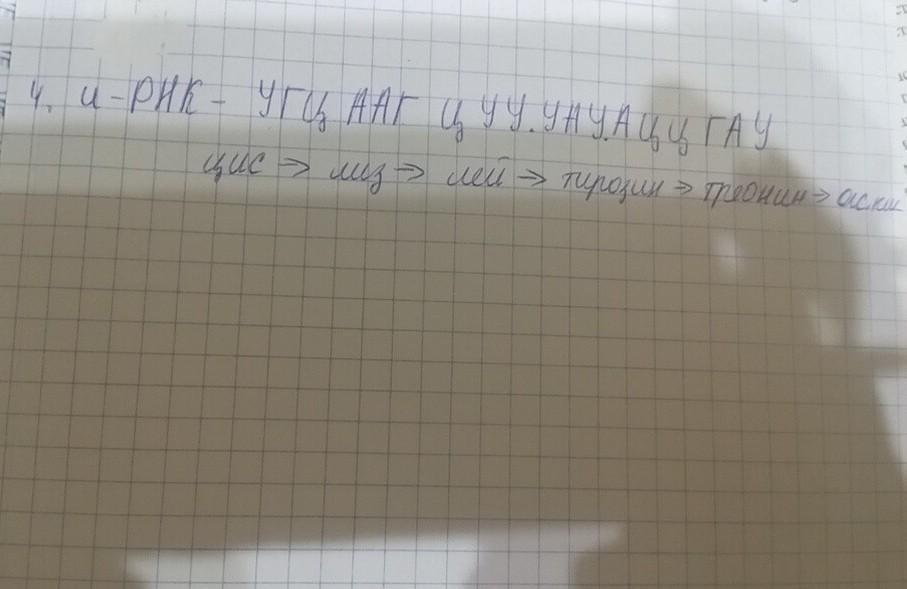 4. и-РНК- УГЦ ААГ ЦУУ.УАУ.АЦЦ ГАУ
цис ⇒ лиз ⇒ лей ⇒ тирозин ⇒ треонин ⇒